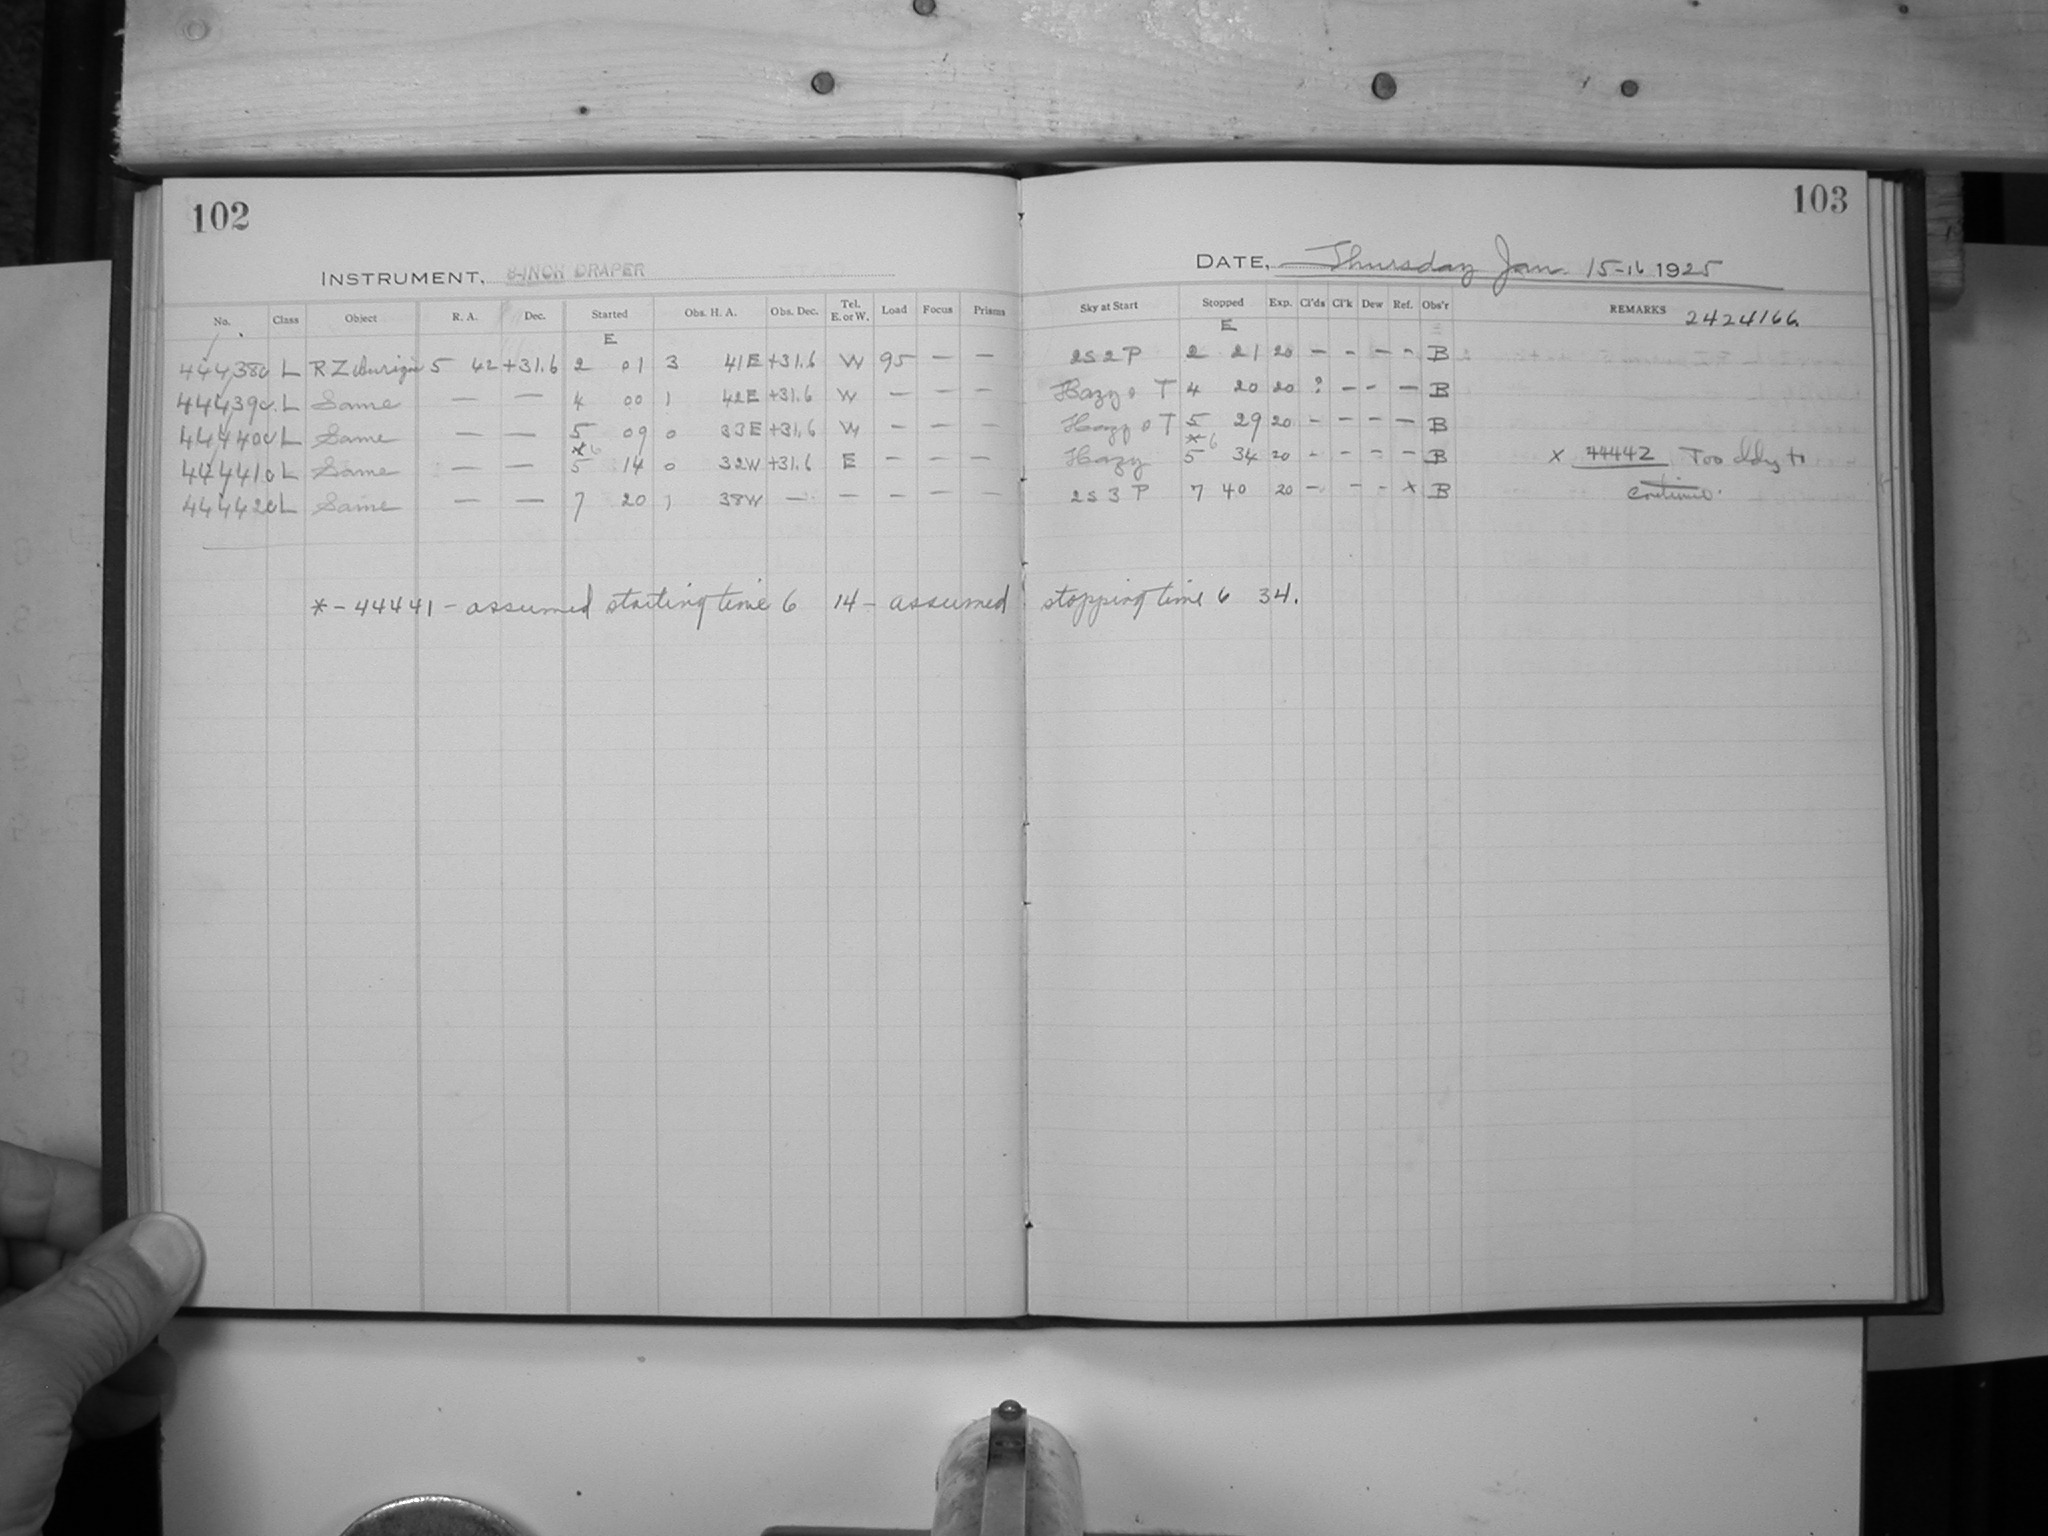 102
103
INSTRUMENT, 8-INCH DRAPER
DATE, Thursday Jan. 15-16 1925
No. Class Object R. A. Dec. Started Obs. H. A. Obs. Dec. Tel. E. or W. Load Focus Prisms Sky at Start Stopped Exp. Cl'ds Cl'k Dew Ref. Obs'r REMARKS 2424166
E E
44438 L R.Z 5 42 +31.6 2 01 3 41E +31.6 W 95 — — 2S 2 P 2 21 20 - - - - B
44439 L Same — — 4 00 1 42E +31.6 W — — — Hazy T 4 20 20 ? - - - B
44440 L Same — — 5 09 0 33E +31.6 W — — — Hazy T 5 29 20 - - - - B
44441 L Same — — *6 5 14 0 32W +31.6 E — — — Hazy *6 5 34 20 - - - - B x 44442 Too to
44442 L Same — — 7 20 1 38W — — — — — 2S 3 P 7 40 20 - - - x B continue.
* - 44441 - assumed starting time 6 14 - assumed stopping time 6 34.